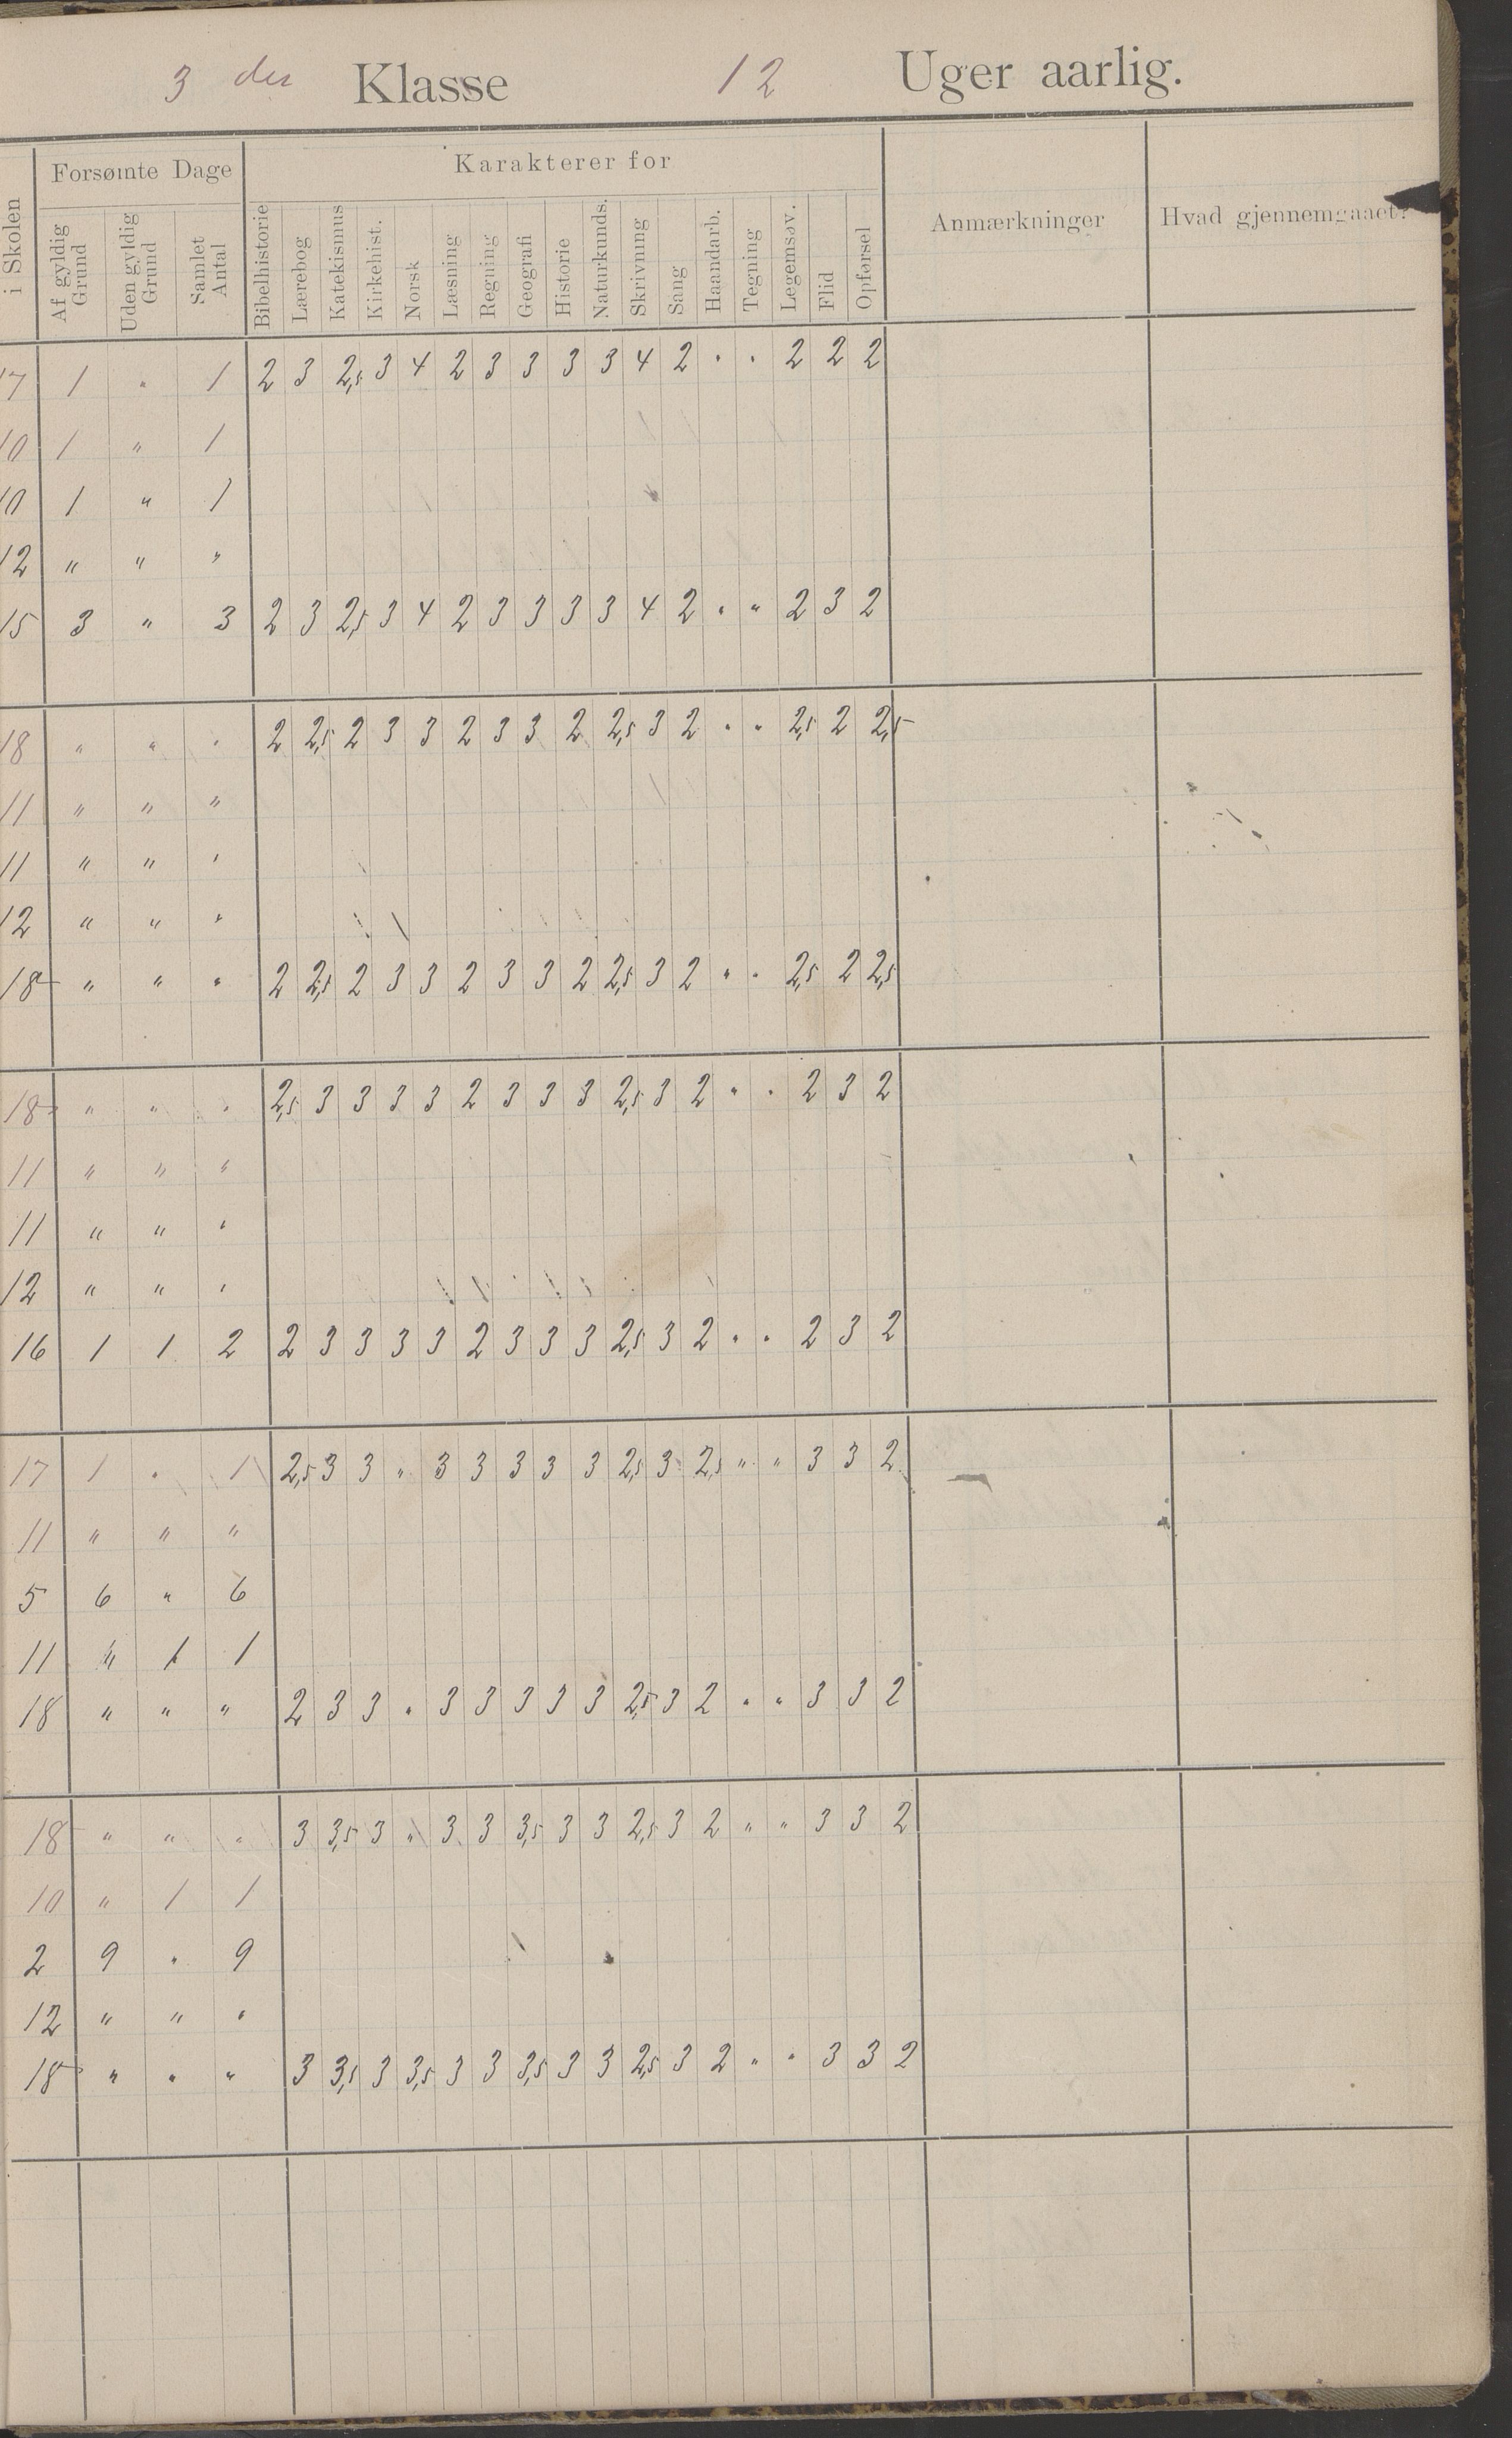 3 die Klasse 12 Uger aarlig.
i Skolen Forsømte Dage Karakterer for Anmærkninger Hvad gjennemgaaet?
Af gyldig Grund Uden gyldig Grund Samlet Antal Bibelhistorie Lærebog Katekismus Kirkehist. Norsk Læsning Regning Geografi Historie Naturkunds. Skrivning Sang Haandarb. Tegning Legemsøv. Flid Opførsel
17 1 " 1 2 3 2,5 3 4 2 3 3 3 3 4 2 " " 2 2 2
10 1 " 1
10 1 " 1
12 " " "
15 3 " 3 2 3 2,5 3 4 2 3 3 3 3 4 2 " " 2 3 2
18 " " " 2 2,5 2 3 3 2 3 3 2 2,5 3 2 " " 2,5 2 2,5
11 " " "
11 " " "
12 " " "
18 " " " 2 2,5 2 3 3 2 3 3 2 2,5 3 2 " " 2,5 2 2,5
18 " " " 2,5 3 3 3 3 2 3 3 3 2,5 3 2 " " 2 3 2
11 " " "
11 " " "
12 " " "
16 1 1 2 2 3 3 3 3 2 3 3 3 2,5 3 2 " " 2 3 2
17 1 " 1 2,5 3 3 " 3 3 3 3 3 2,5 3 2,5 " " 3 3 2
11 " " "
5 6 " 6
11 " 1 1
18 " " " 2 3 3 " 3 3 3 3 3 2,5 3 2 " " 3 3 2
18 " " " 3 3,5 3 " 3 3 3,5 3 3 2,5 3 2 " " 3 3 2
10 " 1 1
2 9 " 9
12 " " "
18 " " " 3 3,5 3 3,5 3 3 3,5 3 3 2,5 3 2 " " 3 3 2